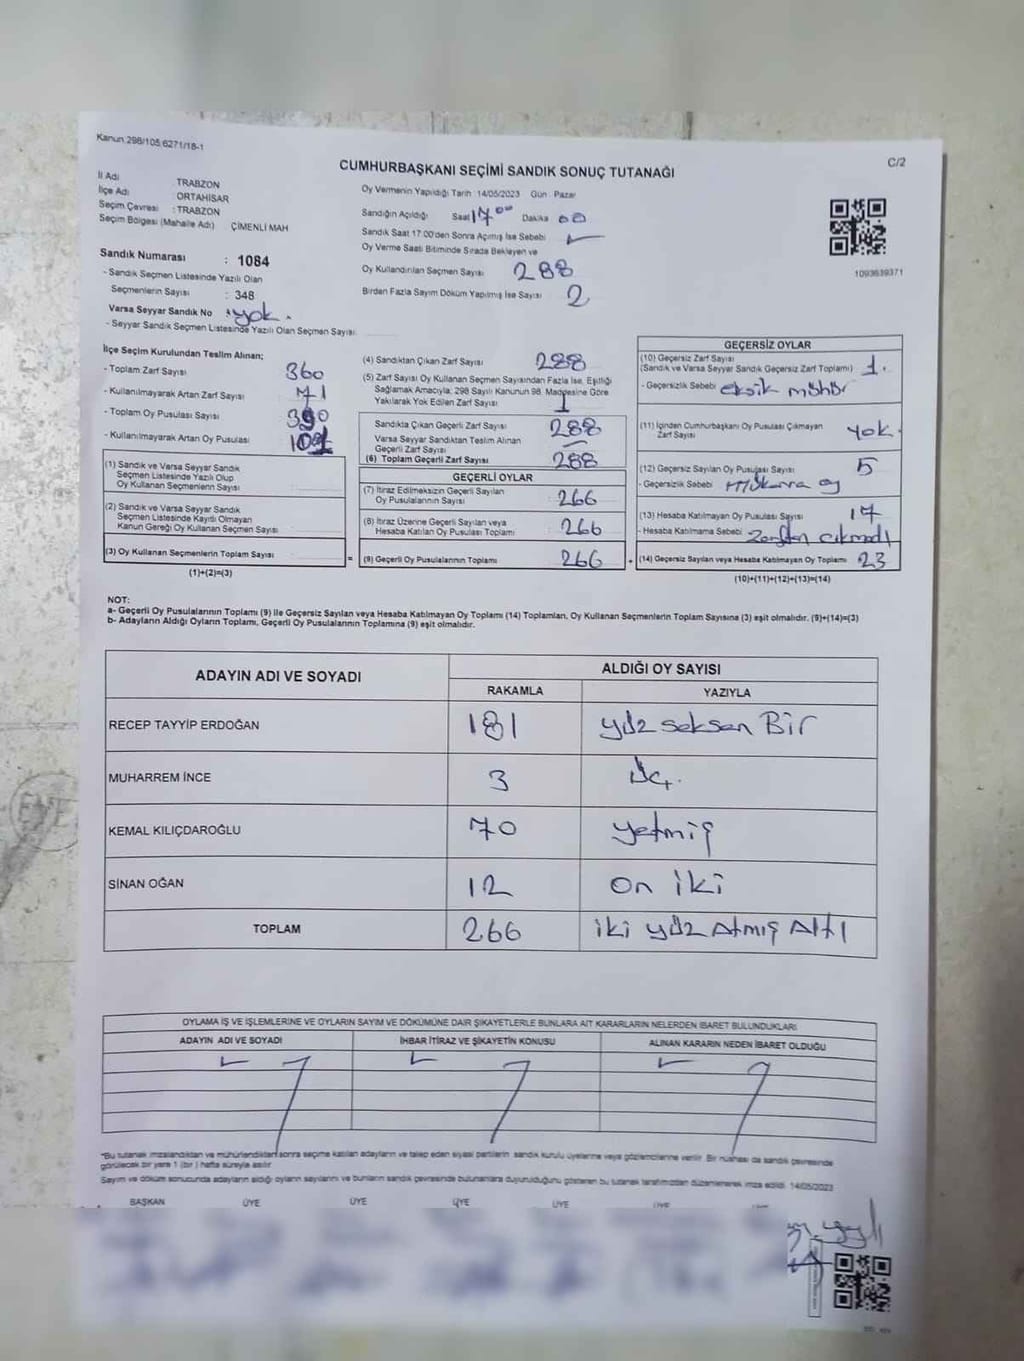 Kanun 298/105,6271/18-1
C/2
CUMHURBAŞKANI SEÇİMİ SANDIK SONUÇ TUTANAĞI
İl Adı : TRABZON
İlçe Adı ORTAHİSAR
Seçim Çevresi : TRABZON
Seçim Bölgesi (Mahalle Adı) ÇİMENLİ MAH
Sandık Numarası : 1084
- Sandık Seçmen Listesinde Yazılı Olan
Seçmenlerin Sayısı : 348
Varsa Seyyar Sandık No : yok.
- Seyyar Sandık Seçmen Listesinde Yazılı Olan Seçmen Sayısı
Oy Vermenin Yapıldığı Tarih 14/05/2023 Gün Pazar
Sandığın Açıldığı Saat 17 00 Dakika 00
Sandık Saat 17.00'den Sonra Açılmış İse Sebebi
Oy Verme Saati Bitiminde Sırada Bekleyen ve
Oy Kullandırılan Seçmen Sayısı 288
Birden Fazla Sayım Döküm Yapılmış İse Sayısı 2
1093639371
İlçe Seçim Kurulundan Teslim Alınan;
- Toplam Zarf Sayısı 360
- Kullanılmayarak Artan Zarf Sayısı 71
- Toplam Oy Pusulası Sayısı 390
- Kullanılmayarak Artan Oy Pusulası
(1) Sandık ve Varsa Seyyar Sandık
Seçmen Listesinde Yazılı Olup
Oy Kullanan Seçmenlerin Sayısı
(2) Sandık ve Varsa Seyyar Sandık
Seçmen Listesinde Kayıtlı Olmayan
Kanun Gereği Oy Kullanan Seçmen Sayısı
(3) Oy Kullanan Seçmenlerin Toplam Sayısı
(1)+(2)=(3)
(4) Sandıktan Çıkan Zarf Sayısı 288
(5) Zarf Sayısı Oy Kullanan Seçmen Sayısından Fazla İse, Eşitliği
Sağlamak Amacıyla; 298 Sayılı Kanunun 98. Maddesine Göre
Yakılarak Yok Edilen Zarf Sayısı 1
Sandıkta Çıkan Geçerli Zarf Sayısı 288
Varsa Seyyar Sandıktan Teslim Alınan
Geçerli Zarf Sayısı
(6) Toplam Geçerli Zarf Sayısı 288
GEÇERLİ OYLAR
(7) İtiraz Edilmeksizin Geçerli Sayılan
Oy Pusulalarının Sayısı 266
(8) İtiraz Üzerine Geçerli Sayılan veya
Hesaba Katılan Oy Pusulası Toplamı 266
= (9) Geçerli Oy Pusulalarının Toplamı 266
GEÇERSİZ OYLAR
(10) Geçersiz Zarf Sayısı
(Sandık ve Varsa Seyyar Sandık Geçersiz Zarf Toplamı) 1.
- Geçersizlik Sebebi eksik mühür
(11) İçinden Cumhurbaşkanı Oy Pusulası Çıkmayan
Zarf Sayısı yok.
(12) Geçersiz Sayılan Oy Pusulası Sayısı 5
- Geçersizlik Sebebi Mükerra oy
(13) Hesaba Katılmayan Oy Pusulası Sayısı 17
- Hesaba Katılmama Sebebi Zarftan çıkmadı
+ (14) Geçersiz Sayılan veya Hesaba Katılmayan Oy Toplamı 23
(10)+(11)+(12)+(13)=(14)
NOT:
a- Geçerli Oy Pusulalarının Toplamı (9) ile Geçersiz Sayılan veya Hesaba Katılmayan Oy Toplamı (14) Toplamları, Oy Kullanan Seçmenlerin Toplam Sayısına (3) eşit olmalıdır. (9)+(14)=(3)
b- Adayların Aldığı Oyların Toplamı, Geçerli Oy Pusulalarının Toplamına (9) eşit olmalıdır.
ADAYIN ADI VE SOYADI ALDIĞI OY SAYISI
RAKAMLA YAZIYLA
RECEP TAYYİP ERDOĞAN 181 yüz seksen Bir
MUHARREM İNCE 3 üç.
KEMAL KILIÇDAROĞLU 70 yetmiş
SİNAN OĞAN 12 on iki
TOPLAM 266 iki yüz Atmış Altı
OYLAMA İŞ VE İŞLEMLERİNE VE OYLARIN SAYIM VE DÖKÜMÜNE DAİR ŞİKAYETLERLE BUNLARA AİT KARARLARIN NELERDEN İBARET BULUNDUKLARI
ADAYIN ADI VE SOYADI İHBAR İTİRAZ VE ŞİKAYETİN KONUSU ALINAN KARARIN NEDEN İBARET OLDUĞU
*Bu tutanak imzalandıktan ve mühürlendikten sonra seçime katılan adayların ve talep eden siyasi partilerin sandık kurulu üyelerine veya gözlemcilerine verilir. Bir nüshası da sandık çevresinde
görülecek bir yere 1 (bir) hafta süreyle asılır.
Sayım ve döküm sonucunda adayların aldığı oyların sayılarını ve bunların sandık çevresinde bulunanlara duyurulduğunu gösteren bu tutanak tarafımızdan düzenlenerek imza edildi. 14/05/2023
BAŞKAN ÜYE ÜYE ÜYE ÜYE ÜYE